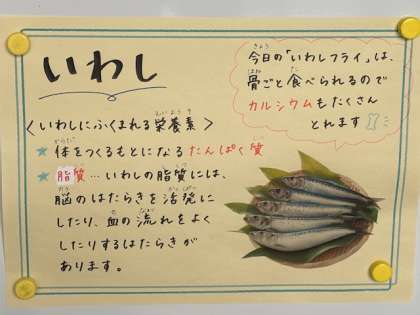 いわし
今日の「いわしフライ」は、
骨ごと食べられるので
カルシウムもたくさん
とれます
〈いわしにふくまれる栄養素〉
★体をつくるもとになるたんぱく質
★脂質…いわしの脂質には、
脳のはたらきを活発に
したり、血の流れをよく
したりするはたらきが
あります。